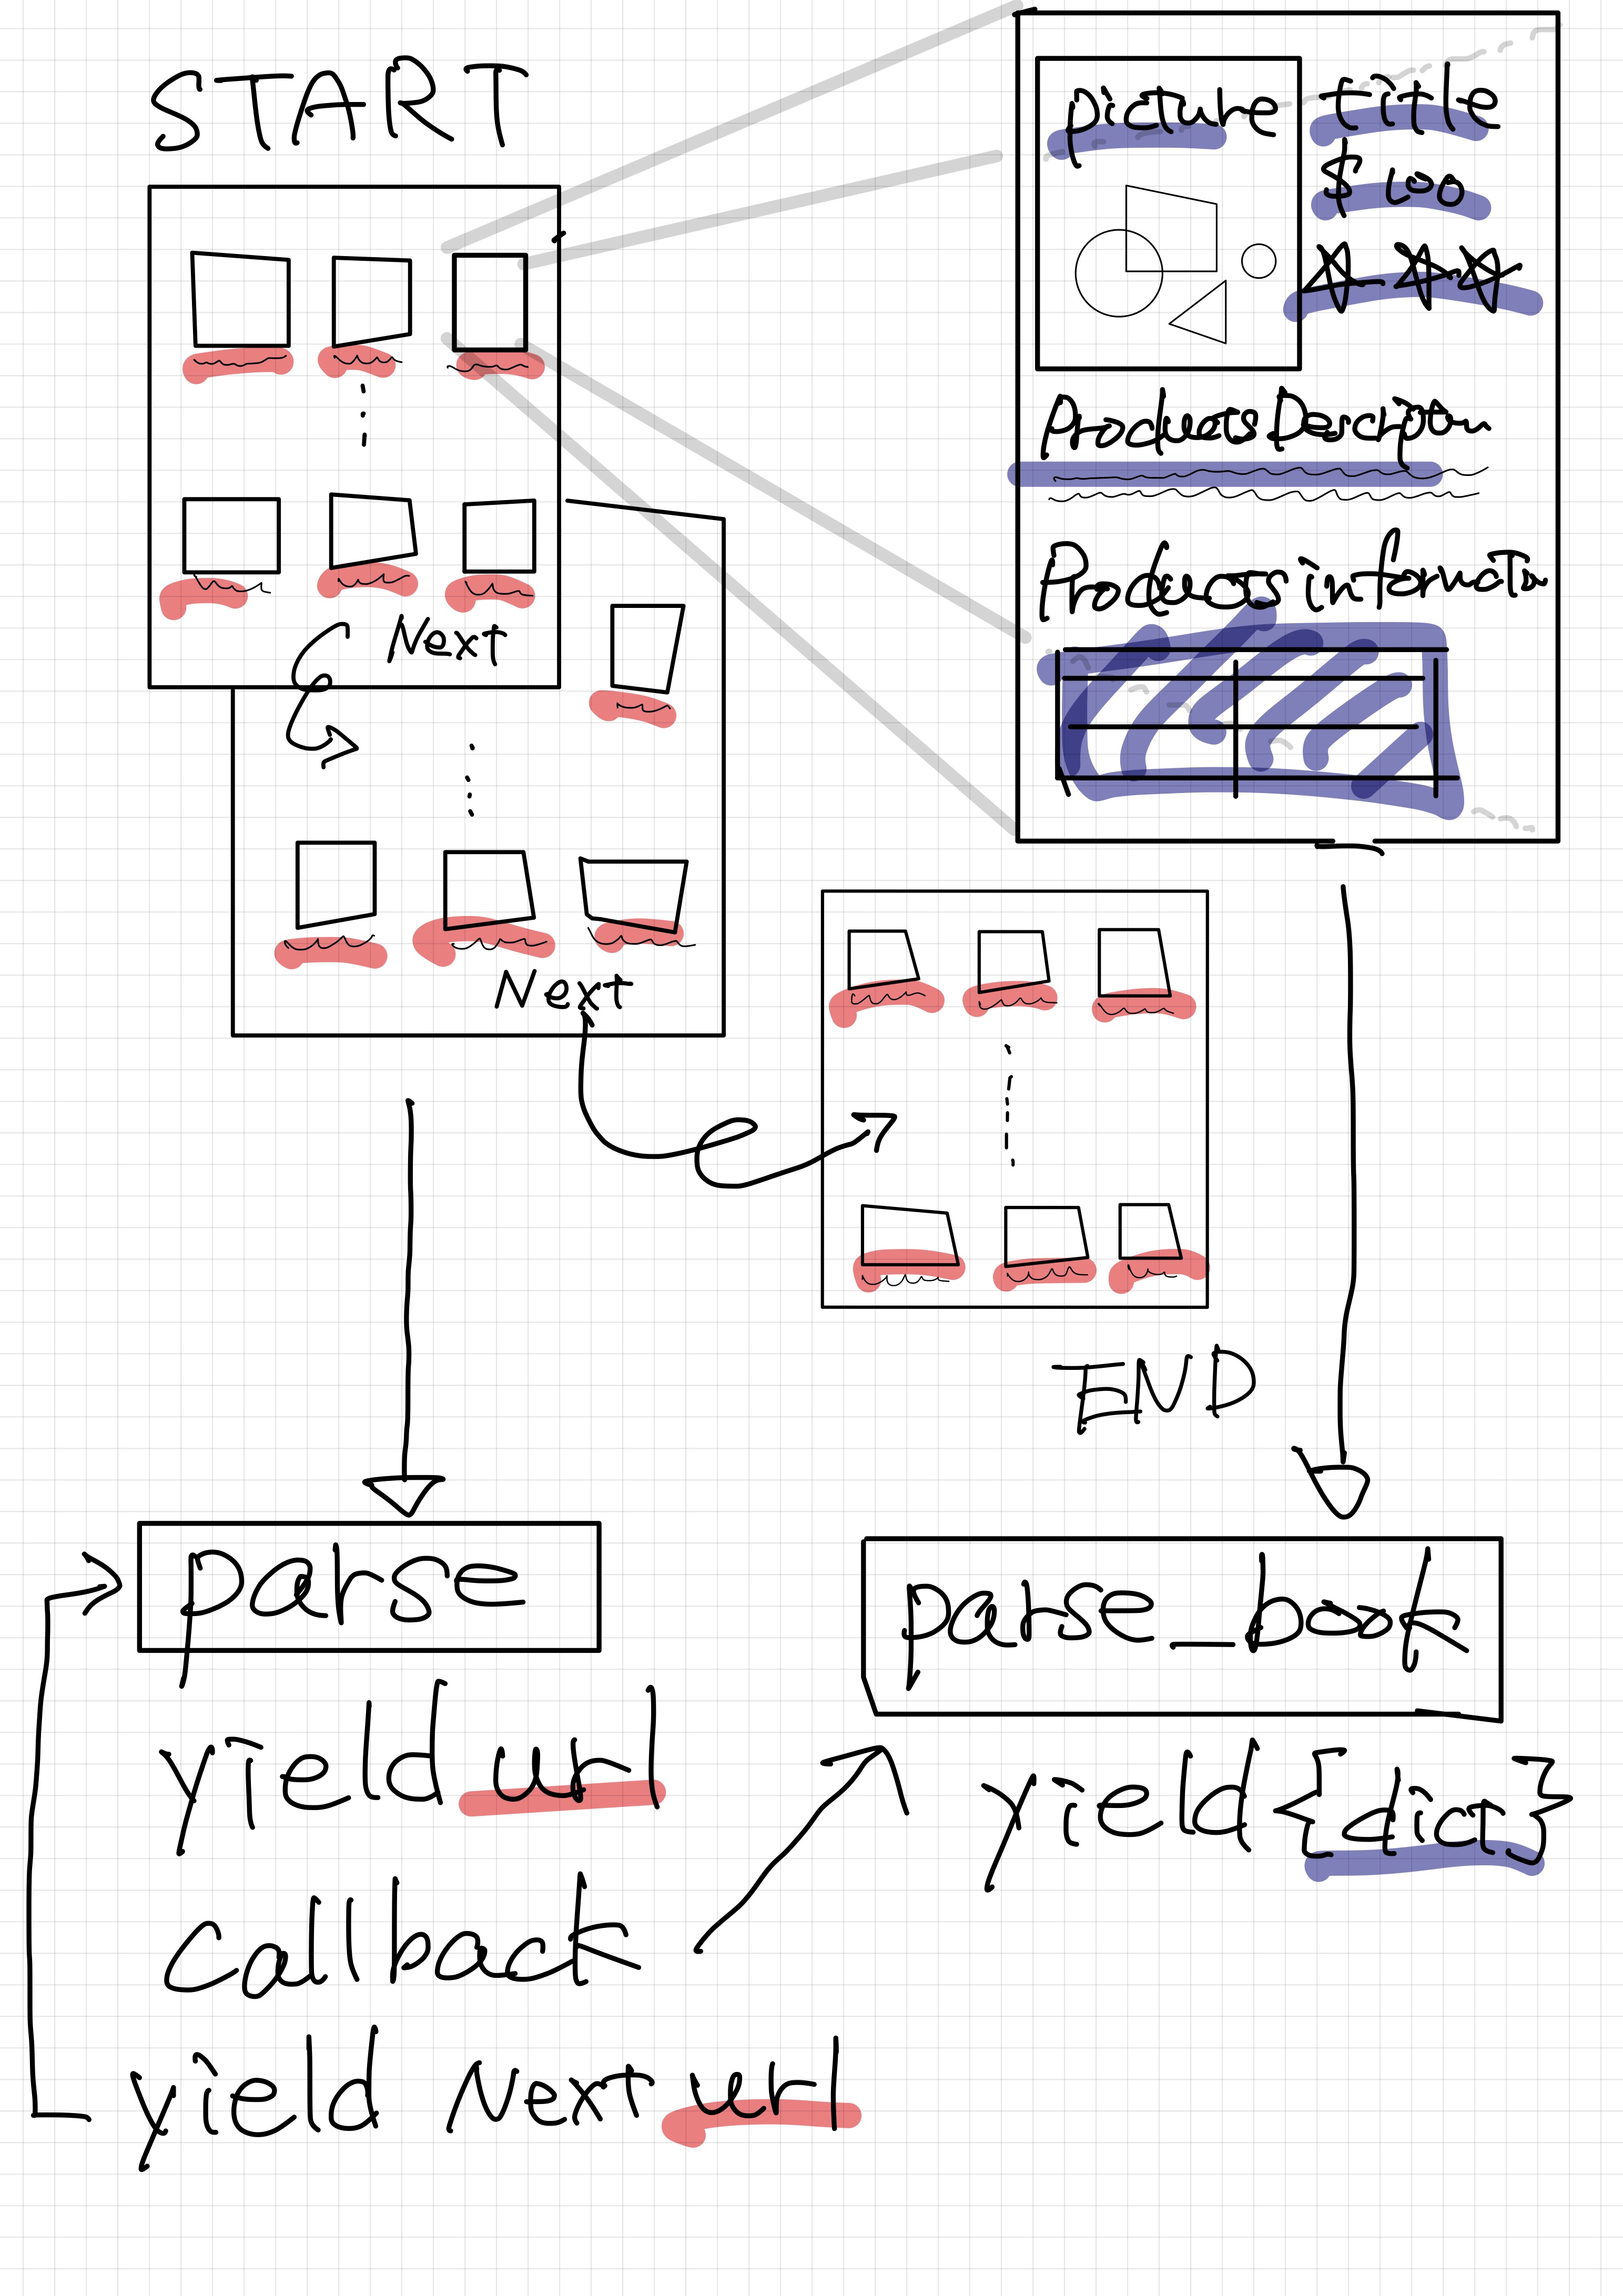 START
picture
title
$ 100
Products Description
Products information
Next
Next
END
parse
yield url
callback
yield Next url
parse_book
yield {dict}